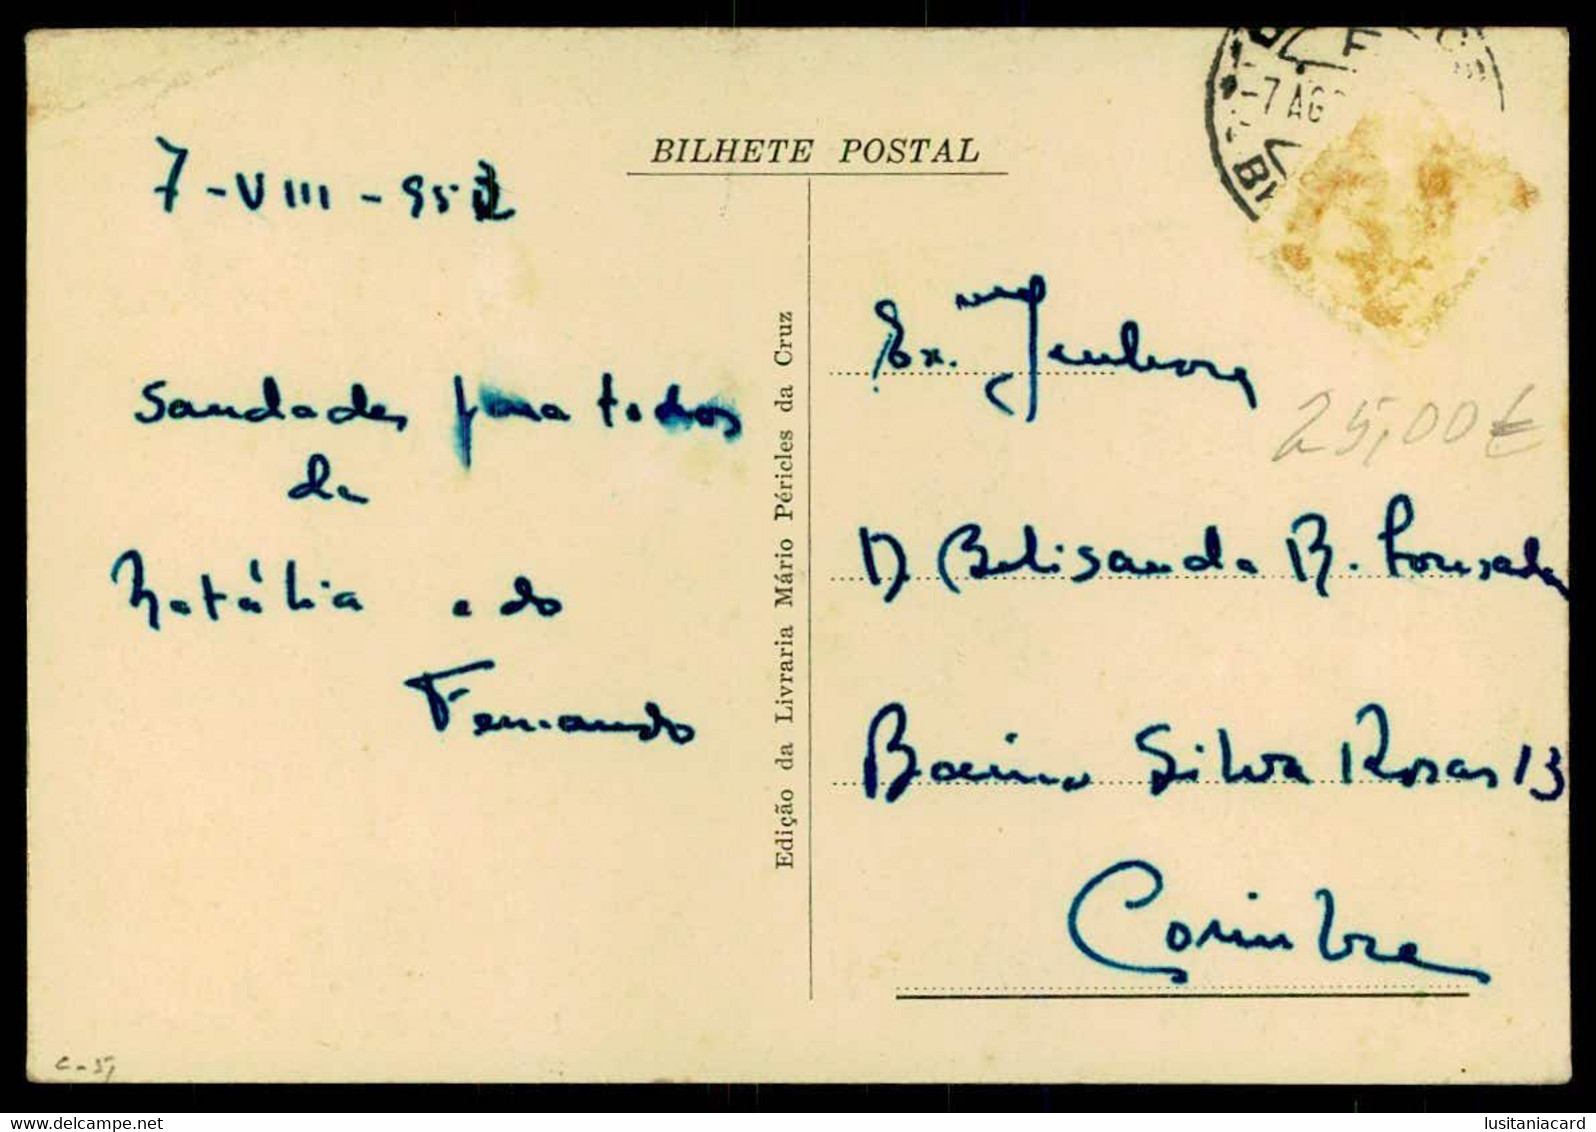 BILHETE POSTAL
-7 AG
7-VIII-952
Saudades para todos
da
Natália e do
Fernando
Edição da Livraria Mário Péricles da Cruz
Ex.ma Senhora
25,00€
D. Belisanda R. Lousada
Bairro Silva Rosas 13
Coimbra
c-5,
lusitaniacard